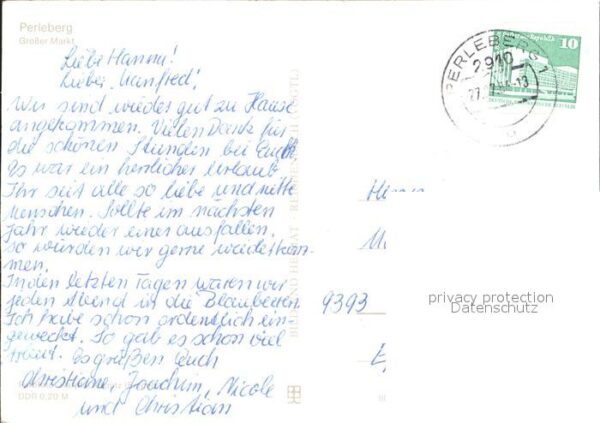 Perleberg
Großer Markt
Liebe Hanna!
Lieber Manfred!
Wir sind wieder gut zu Hause
angekommen. Vielen Dank für
die schönen Stunden bei Euch.
Es war ein herrlicher Urlaub
Ihr seit alle so liebe und nette
Menschen. Sollte im nächsten
Jahr wieder einer ausfallen,
so würden wir gerne wiederkom-
men.
In den letzten Tagen waren wir
jeden Abend in die Blaubeeren
Ich habe schon ordentlich ein-
geweckt. So gab es schon viel
Es grüßen Euch
Christiane, Joachim, Nicole
und Christian
DDR 0,20 M
BILD UND HEIMAT REICHENBACH (VOGTL)
PERLEBERG 1
2910
10
9393
privacy protection
Datenschutz